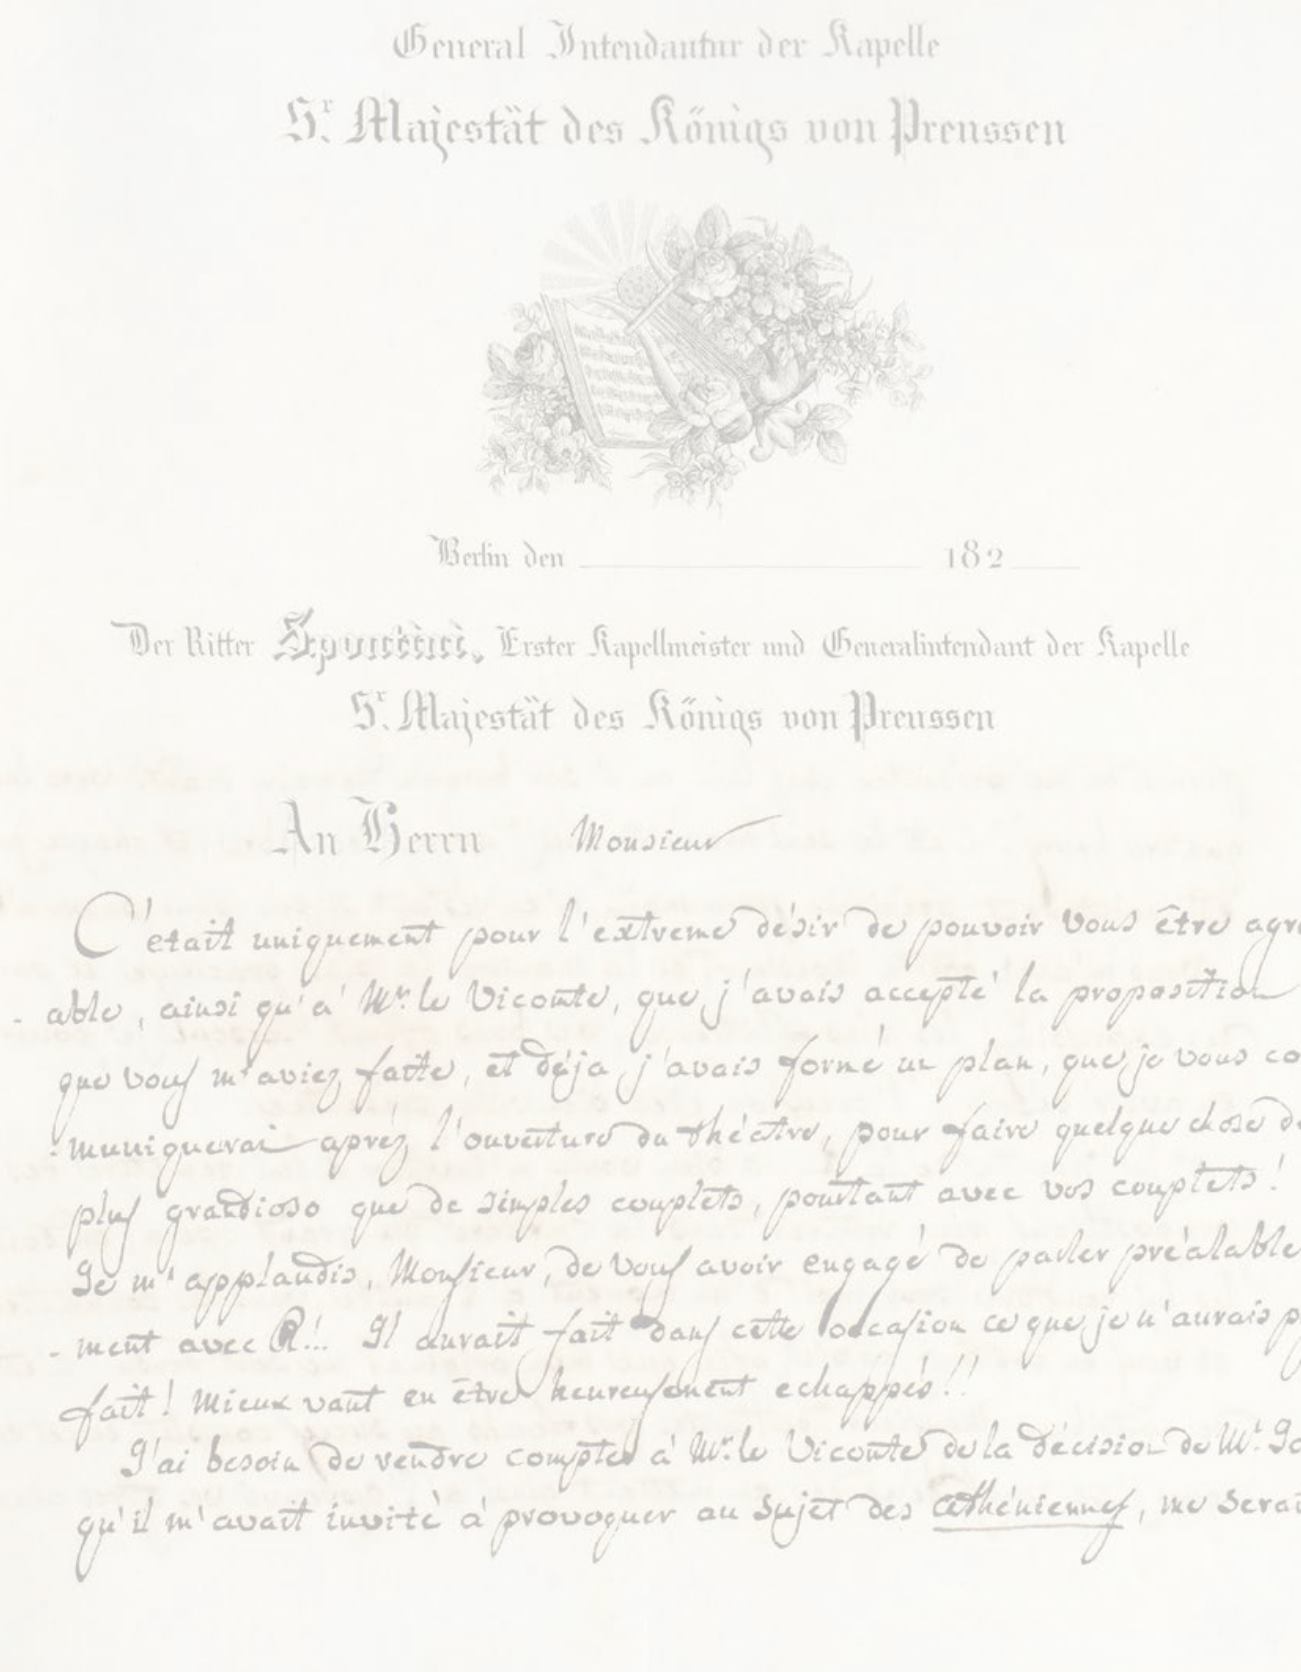 General Intendantur der Kapelle
Sr. Majestät des Königs von Preussen
Berlin den 182
Der Ritter Spontini, Erster Kapellmeister und Generalintendant der Kapelle
Sr. Majestät des Königs von Preussen
An Herrn Monsieur
C'était uniquement pour l'extreme désir de pouvoir vous être agré
- able, ainsi qu'à Mr. le Vicomte, que j'avais accepté la proposition
que vous m'aviez faite, et déja j'avais formé un plan, que je vous co
muniquerai apréz l'ouverture du théâtre, pour faire quelque chose de
plus grandioso que de simples couplets, pourtant avec vos couplets!
Je m'applaudis, Monsieur, de vous avoir engagé de parler préalable
- ment avec R!.. Il aurait fait dans cette occasion ce que je n'aurais p
fait! Mieux vaut en être heureusement echappés!!
J'ai besoin de rendre compte à Mr. le Vicomte de la décision de Mr.
qu'il m'avait invité à provoquer au sujet des athéniennes, me serai